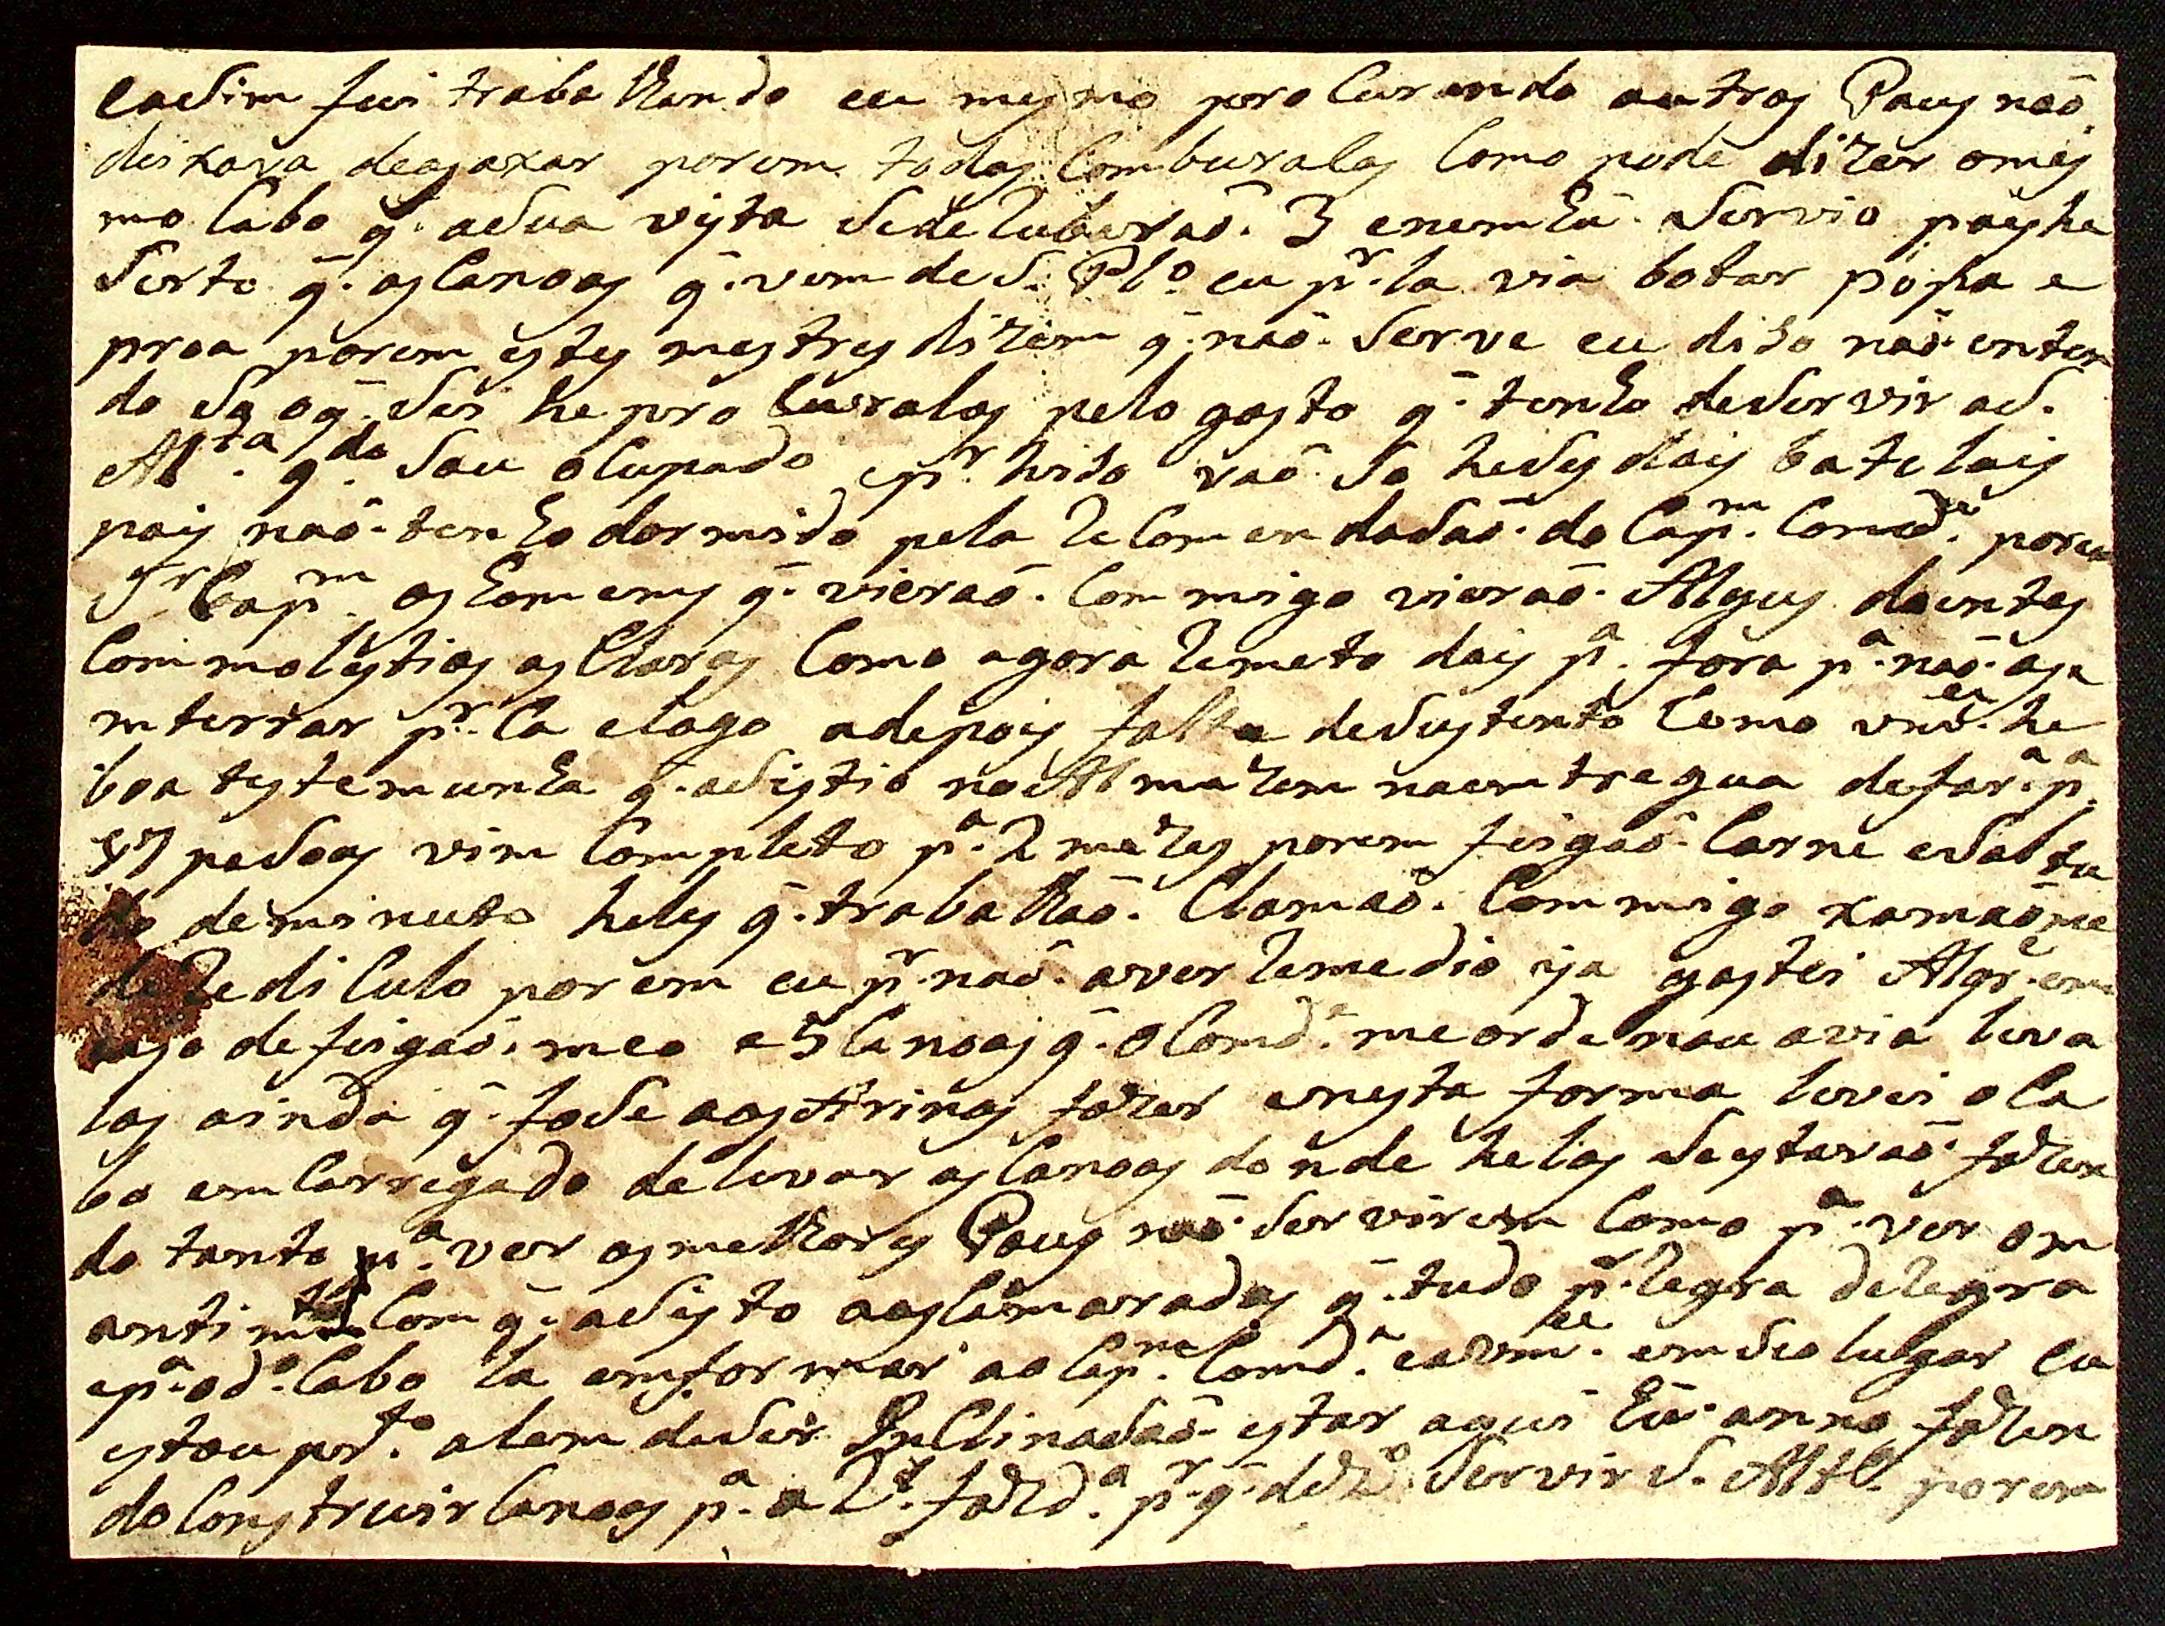 easim fui trabalhando eu mesmo procurando outros Paus não
deixava deaxaxar porem todos Comburacos Como pode dizer omes
mo Cabo q̃. asua vista sederubarão. 3 enemhũ. Servio pois he
Serto q̃. as Canoas q̃. vem de S. Plo. eu pr. la via botar popa e
proa porem estes mestres dizem q̃. não. Serve eu diso não enten
do So oq̃. Sei he procuralos pelo gosto q̃. tenho deServir aS.
Alta. qdo. Sou ocupado epr. hiso vão So heses dois batelois
pois não tenho dormido pela Recomendasão. do Capm. Comde. porem
Sr Capm. os homems q̃. vierão. Commigo vierão. Algus doentes
Commolestias as Claras Como agora Remeto dois pa. fora pa. não. os e
mterrar pr. Ca elogo adepois falta deSustento Como vmce. he
boa testemunha q̃. asistio noAlmazem naemtregua defara. pa.
37 pesoas vim Completo pa. 2 mezes porem feigão. Carne esal tu
do deminuto heles q̃. trabalhão. Clamão. Commigo xamãome
de Rediculo porem eu pr. não. aver Remedio ja gastei Algr.
de feigão. meo e 5 Canoas q̃. o Comde. meordenou avia leva
las ainda q̃. fose aos fazer enesta forma levei oCa
bo emCarregado delevar as Canoas donde helas Sestavão. fazen
do tanto pa. ver osmelhores Paus não. Servirem Como pa. ver om
antimto Com q̃. asisto aosCamaradas q̃. tudo pr. Regra deRegra
epa. odo. Cabo la emformar ao Capm. Comde. eavmce. emSeo lugar eu
estou prto. alem deSer InClinasão estar aqui hũ. anno fazen
do Construir Canoas pa. a Rl. fazda. pr. q̃. dezo. Servir S. Alta. porem